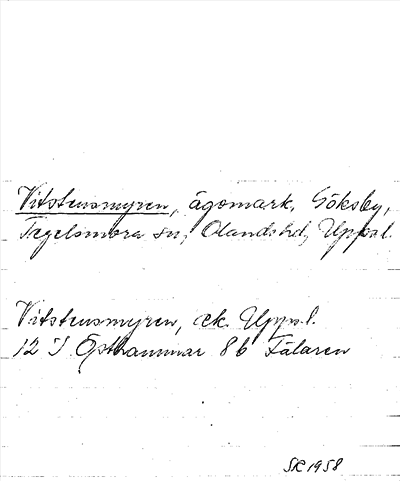 Vitstensmyren, ägomark, Göksby,
Tegelsmora sn, Olands hd, Uppsal.
Vitstensmyren, ek. Upps.l.
12 I Östhammar 8b Fälaren
SK 1958